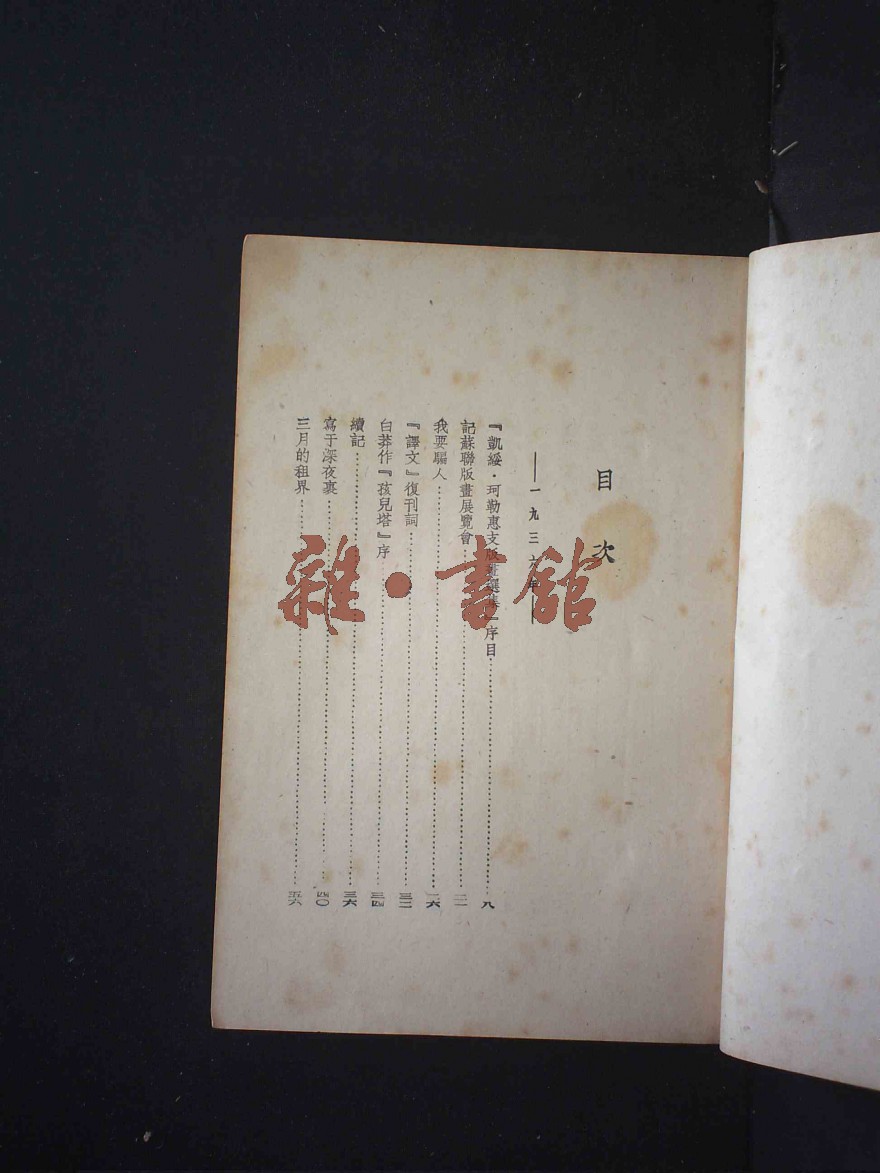 目次
——一九三六年——
『凱綏·珂勒惠支版畫選集』序目……八
記蘇聯版畫展覽會……
我要騙人……二六
『譯文』復刊詞……三二
白莽作『孩兒塔』序……三四
續記……三六
寫于深夜裏……四〇
三月的租界……五六
雜·書館